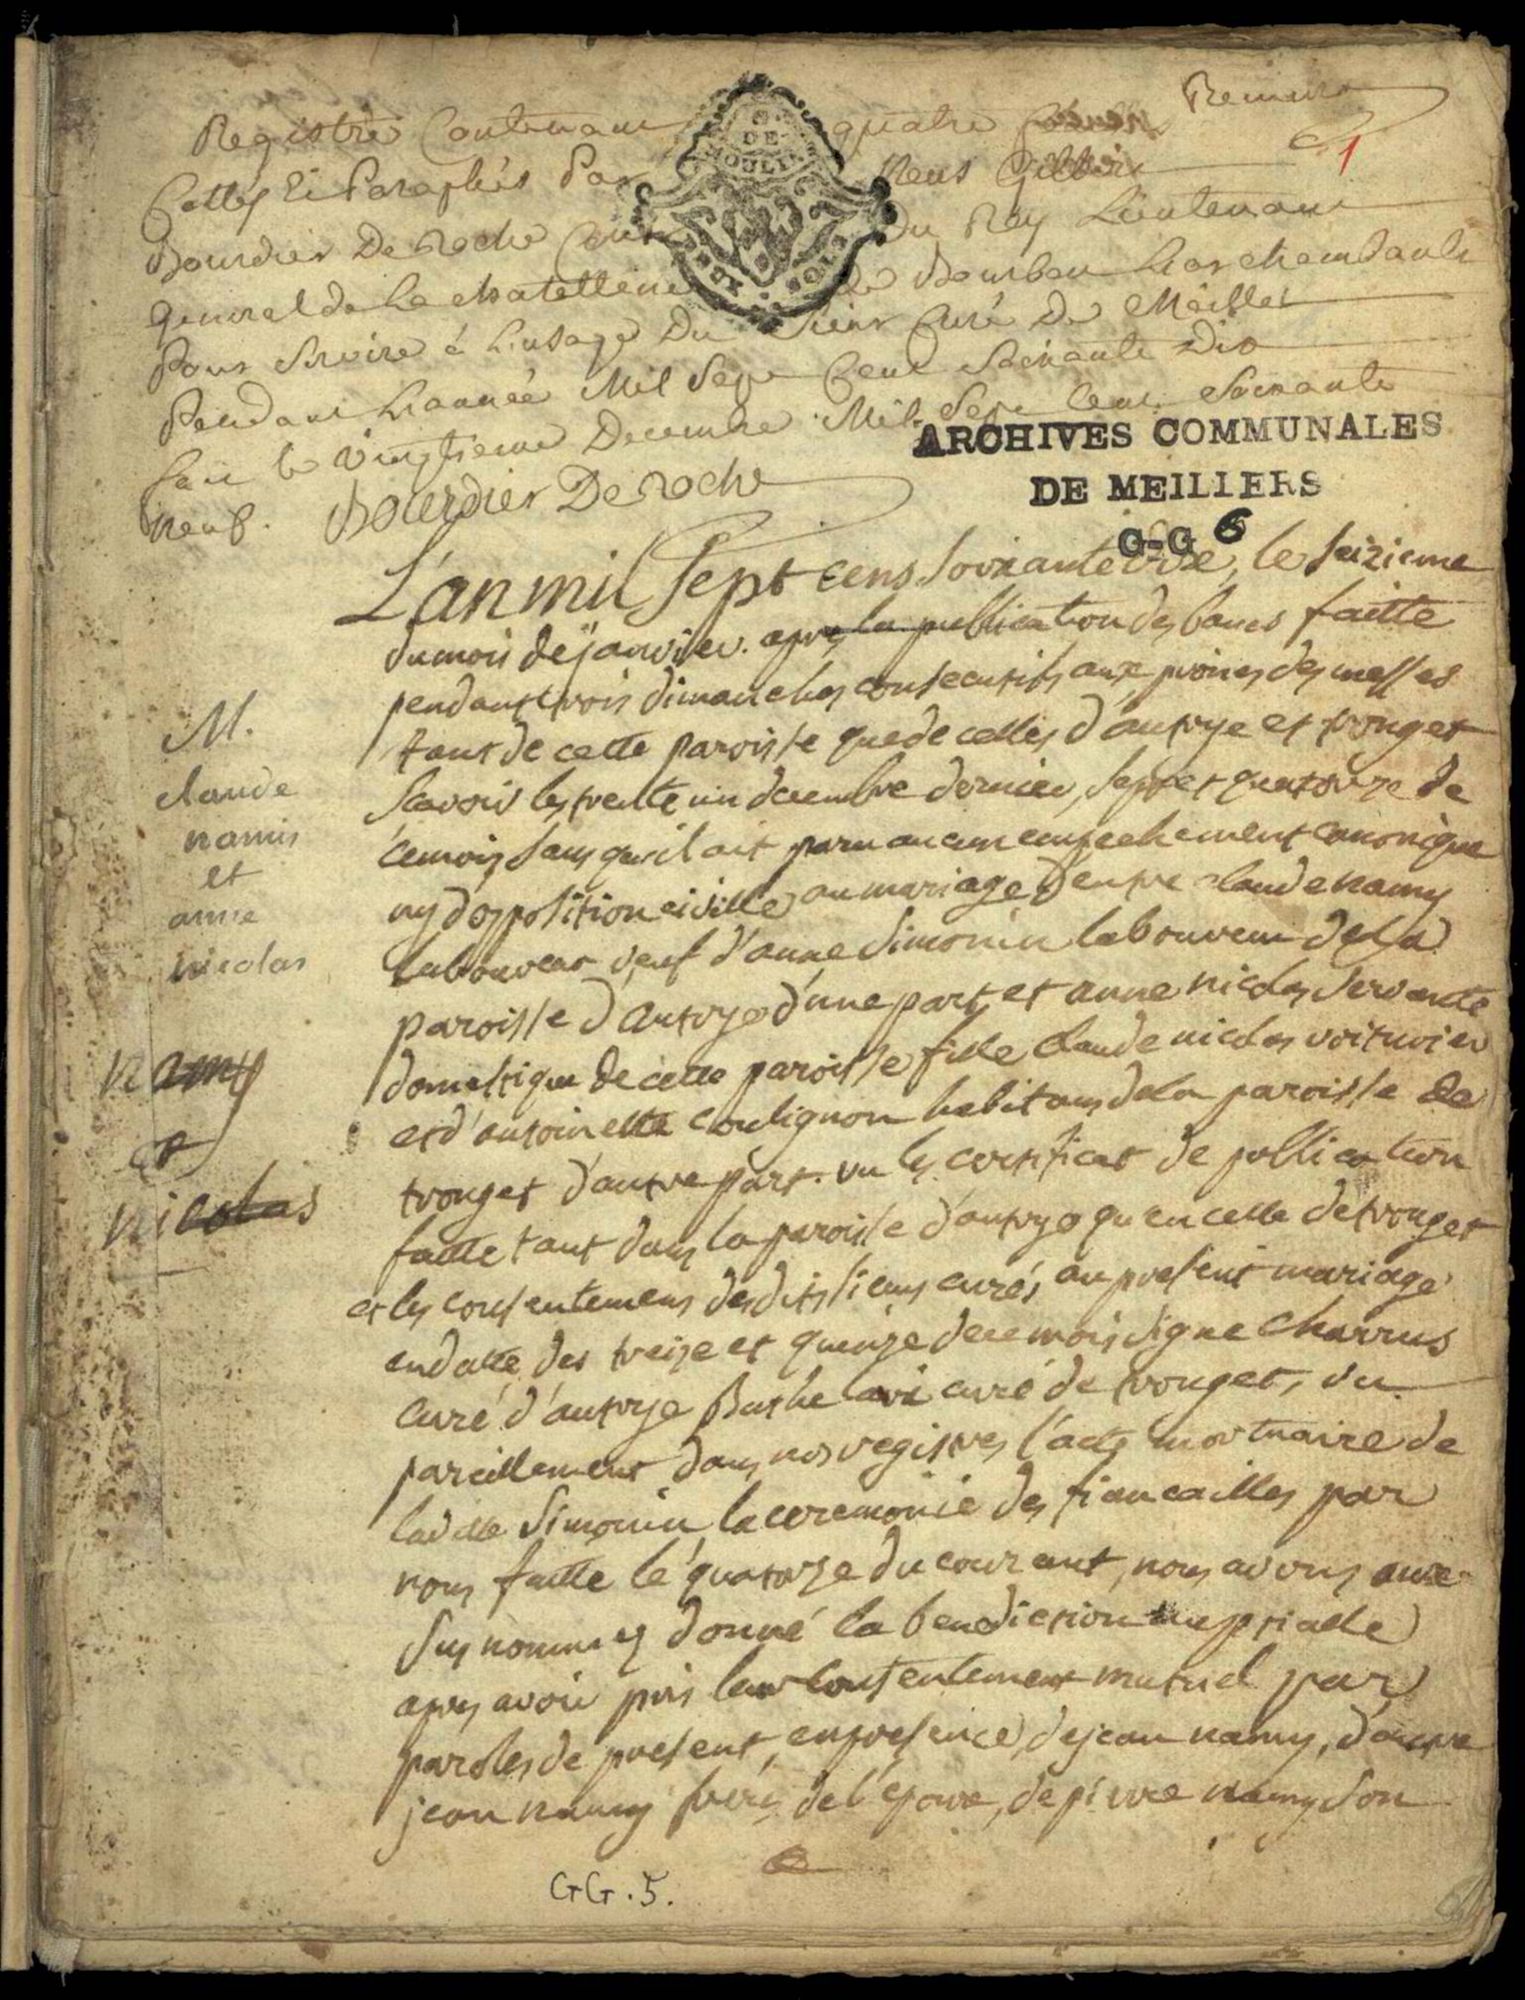 Premier
Registre Contenant quatre
1
Cottés Et Paraphés Par Nous Gilbert
Bourdier De roche Con du Roy Lieutenant
General de La chatellenie de Bourbon Larchambault
Pour Servire à L'usage Du Sieur Curé De Meillet
Pendant L'année Mil Sept Cent Soixante Dix
fait le vingtieme Decembre Mil Sept Cent Soixante
neuf. Bourdier De roche
DE MOULINS
DEUX SOLS
ARCHIVES COMMUNALES
DE MEILLERS
G-G 6
L'an mil Sept cens Soixante dix, le Seizieme
du mois de janvier. apres la publication des bancs faitte
pendant trois dimanches consecutifs aux prones des messes
tant de cette paroisse que de celles d'autrye et tronget
Scavoir les trente un decembre dernier, sept et quatorze de
ce mois sans qu'il ait paru aucun empechement canonique
ny d'opposition civille au mariage d'entre claude namy
laboureur veuf d'anne Simonin laboureur de la
paroisse d'Autrye d'une part, et anne nicolas servante
domestique de cette paroisse fille claude nicolas voiturier
et d'antoinette coulignon habitans de la paroisse de
tronget d'autre part. vu les certificat de publication
faitte tant dans la paroisse d'autrye qu'en celle de tronget
et les consentemens desdits sieurs curés au present mariage
en datte des treize et quinze de ce mois signe Charrus
curé d'autrye curé de tronget, vu
pareillement dans nos registres l'acte mortuaire de
laditte Simonin la ceremonie des fiancailles par
nous faitte le quatorze du courant, nous avons aux
susnommes donné la benediction nuptialle
apres avoir pris leur consentement mutuel par
paroles de present, en presence de jean namy, d'autre
jean namy frere de l'epoux, de pierre namy son
M.
claude
namis
et
anne
nicolas
namy
et
nicolas
GG.5.